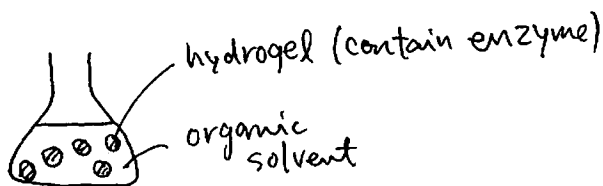 hydrogel (contain enzyme)
organic
solvent